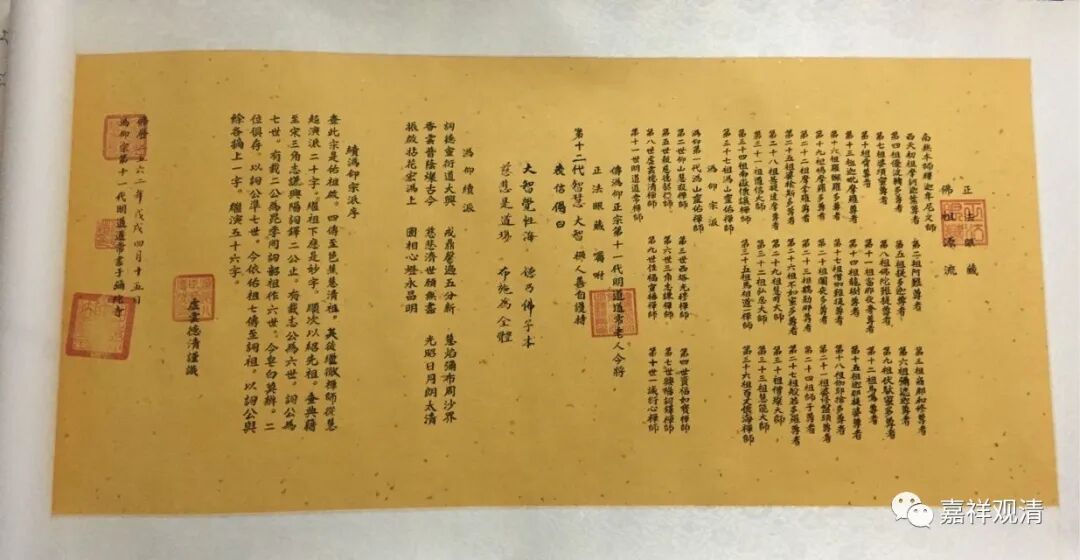 正法眼藏
佛祖源流
南無本師釋迦牟尼文佛
西天初祖摩訶迦葉尊者 第二祖阿難尊者 第三祖商那和修尊者
第四祖優波毱多尊者 第五祖提多迦尊者 第六祖彌遮迦尊者
第七祖婆須蜜尊者 第八祖佛陀難提尊者 第九祖伏馱蜜多尊者
第十祖脅尊者 第十一祖富那夜奢尊者 第十二祖馬鳴尊者
第十三祖迦毗摩羅尊者 第十四祖龍樹尊者 第十五祖迦那提婆尊者
第十六祖羅睺羅多尊者 第十七祖僧伽難提尊者 第十八祖伽耶舍多尊者
第十九祖鳩摩羅多尊者 第二十祖闍夜多尊者 第二十一祖婆修盤頭尊者
第二十二祖摩拏羅尊者 第二十三祖鶴勒那尊者 第二十四祖師子尊者
第二十五祖婆舍斯多尊者 第二十六祖不如蜜多尊者 第二十七祖般若多羅尊者
第二十八祖菩提達摩尊者 第二十九祖慧可大師 第三十祖僧燦大師
第三十一祖道信大師 第三十二祖弘忍大師 第三十三祖慧能大師
第三十四祖南嶽懷讓禪師 第三十五祖馬祖道一禪師 第三十六祖百丈懷海禪師
第三十七祖溈山靈佑禪師
溈仰宗派
溈仰第一代溈山靈佑禪師
第二世仰山慧寂禪師 第三世西塔光穆禪師 第四世資福如寶禪師
第五世報慈德韶禪師 第六世三角志謙禪師 第七世興陽詞鐸禪師
第八世虛雲德清禪師 第九世宣化度輪禪師 第十世一誠衍心禪師
第十一世明道道常禪師
傳溈仰正宗第十一代明道道常老人今將
正法眼藏 囑咐
第十二代智慧 大智 禪人善自護持
表信偈曰
大智覺性海 德乃佛子本
慈悲是道場 布施為全體
溈仰續派
詞德宣衍道大興 戒鼎馨遍五分新 慧焰彌布周沙界
香雲普蔭燦古今 慈悲濟世願無盡 光昭日月朗太清
振啟拈花宏溈上 圓相心燈永昌明
續溈仰宗派序
查此宗是佑祖啟。四傳至芭蕉慧清祖。其後繼徹禪師從慧
起演派二十字。繼祖下應是妙字。順次以紹先祖。查典籍
至宋三角志謙興陽詞鐸二公止。有載志公為六世。詞公為
七世。有載二公為昆季同詞鄱祖作六世。今皂白莫辨。二
位俱存。以詞公準七世。今依佑祖七傳至詞祖。以詞公與
餘各摘上一字。繼演五十六字。
虛雲德清謹識
佛曆二五六二年戊戌四月十五日
溈仰宗第十一代明道道常書于彌陀寺
嘉祥观清